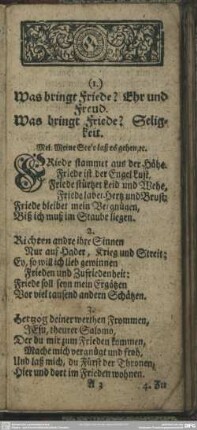 (1.)
Was bringt Friede? Ehr und
Freud.
Was bringt Friede? Selig-
keit.
Mel. Meine See's laß es gehen, ec.
FRiede stammet aus der Höhe
Friede ist der Engel Lust,
Friede stürtzet Leid und Wehe,
Friede labet Hertz und Brust;
Friede bleibet mein Vergnügen,
Biß ich muß im Staube liegen.
2.
Richten andre ihre Sinnen
Nur auf Hader, Krieg und Streit;
Ey, so will ich lieb gewinnen
Frieden und Zufriedenheit:
Friede soll seyn mein Ergötzen
Vor viel tausend andern Schätzen.
3.
Hertzog deiner werthen Frommen,
JEsu, theurer Salomo,
Der du mit zum Frieden kommen,
Mache mich vergnügt und froh,
Und laß mich, du Fürst der Thronen,
Hier und dort im Frieden wohnen.
A 3
4. Fu